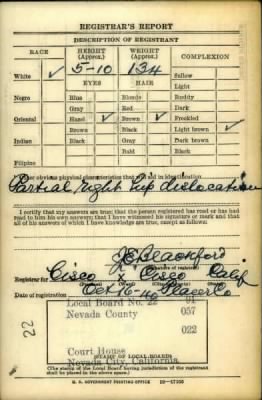 REGISTRAR'S REPORT
DESCRIPTION OF REGISTRANT
RACE HEIGHT (Approx.) WEIGHT (Approx.) COMPLEXION
White ✓ 5-10 134 Sallow
EYES HAIR Light
Negro Blue Blonde Ruddy
Gray Red Dark
Oriental Hazel ✓ Brown ✓ Freckled
Brown Black Light brown ✓
Indian Black Gray Dark brown
Bald Black
Filipino
Other obvious physical characteristics that will aid in identification
Partial right hip dislocation
I certify that my answers are true; that the person registered has read or has had
read to him his own answers; that I have witnessed his signature or mark and that
all of his answers of which I have knowledge are true, except as follows:
J E Blackford
(Signature of registrar)
Registrar for Cisco x Cisco Calif
Date of registration Oct 16-40 Placer Co
Local Board No. 22 01
Nevada County 057
022
22
Court House
Nevada City, California
(STAMP OF LOCAL BOARD)
(The stamp of the Local Board having jurisdiction of the registrant
shall be placed in the above space.)
U. S. GOVERNMENT PRINTING OFFICE